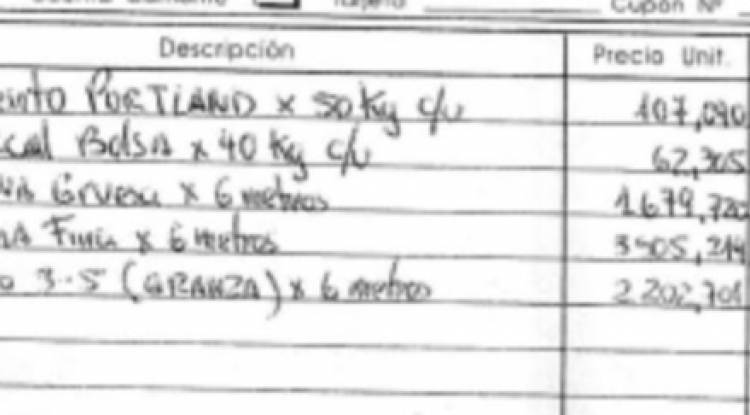 Cupón Nº
Descripción Precio Unit.
ento PORTLAND x 50 Kg c/u 107,090
cal Bolsa x 40 Kg c/u 62,305
NA Gruesa x 6 metros 1679,720
NA Fina x 6 metros 3505,214
o 3.5 (GRANZA) x 6 metros 2202,701